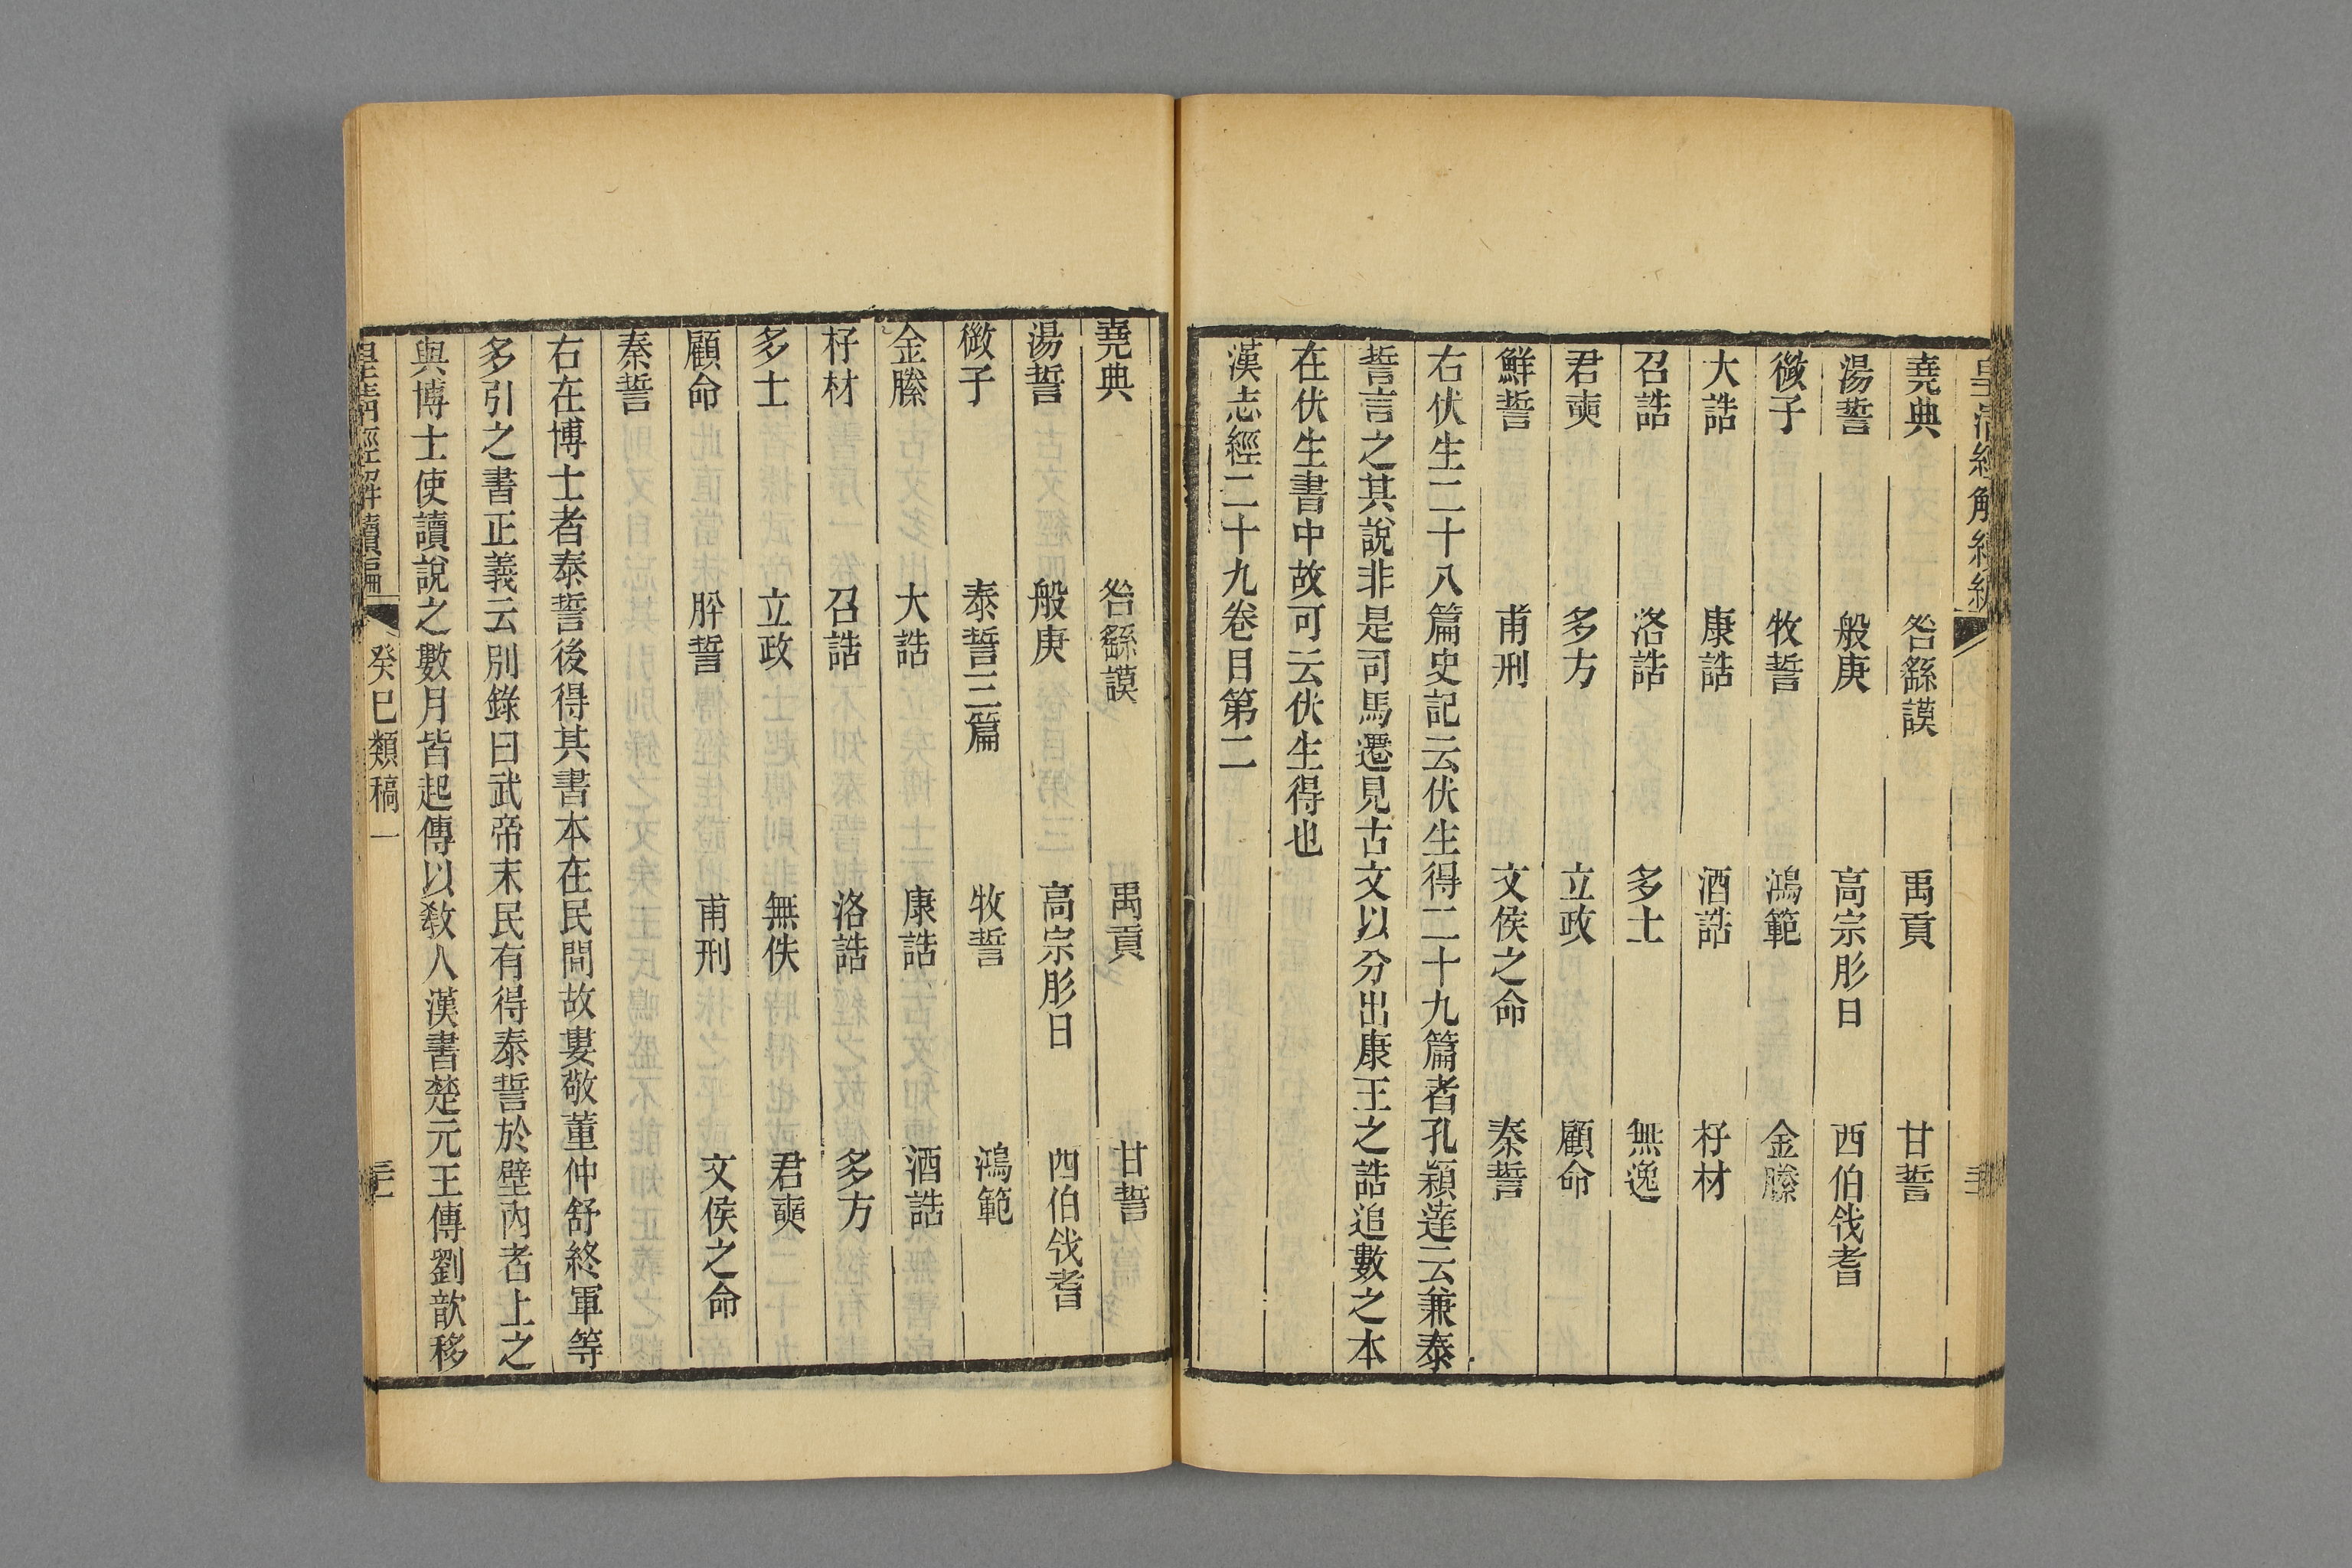 皇清經解續編
堯典 咎繇謨 禹貢 甘誓
湯誓 般庚 高宗肜日 西伯戗耆
微子 牧誓 鴻範 金縢
大誥 康誥 酒誥 杍材
召誥 洛誥 多士 無逸
君奭 多方 立政 顧命
鮮誓 甫刑 文侯之命 秦誓
右伏生二十八篇史記云伏生得二十九篇者孔穎達云兼泰
誓言之其說非是司馬遷見古文以分出康王之誥追數之本
在伏生書中故可云伏生得也
漢志經二十九卷目第二
堯典 咎繇謨 禹貢 甘誓
湯誓 般庚 高宗肜日 西伯戗耆
微子 泰誓三篇 牧誓 鴻範
金縢 大誥 康誥 酒誥
杍材 召誥 洛誥 多方
多士 立政 無佚 君奭
顧命 肸誓 甫刑 文侯之命
秦誓
右在博士者泰誓後得其書本在民間故婁敬董仲舒終軍等
多引之書正義云別錄曰武帝末民有得泰誓於壁內者上之
與博士使讀說之數月皆起傳以敎人漢書楚元王傳劉歆移
皇清經解續編 癸巳類稿一